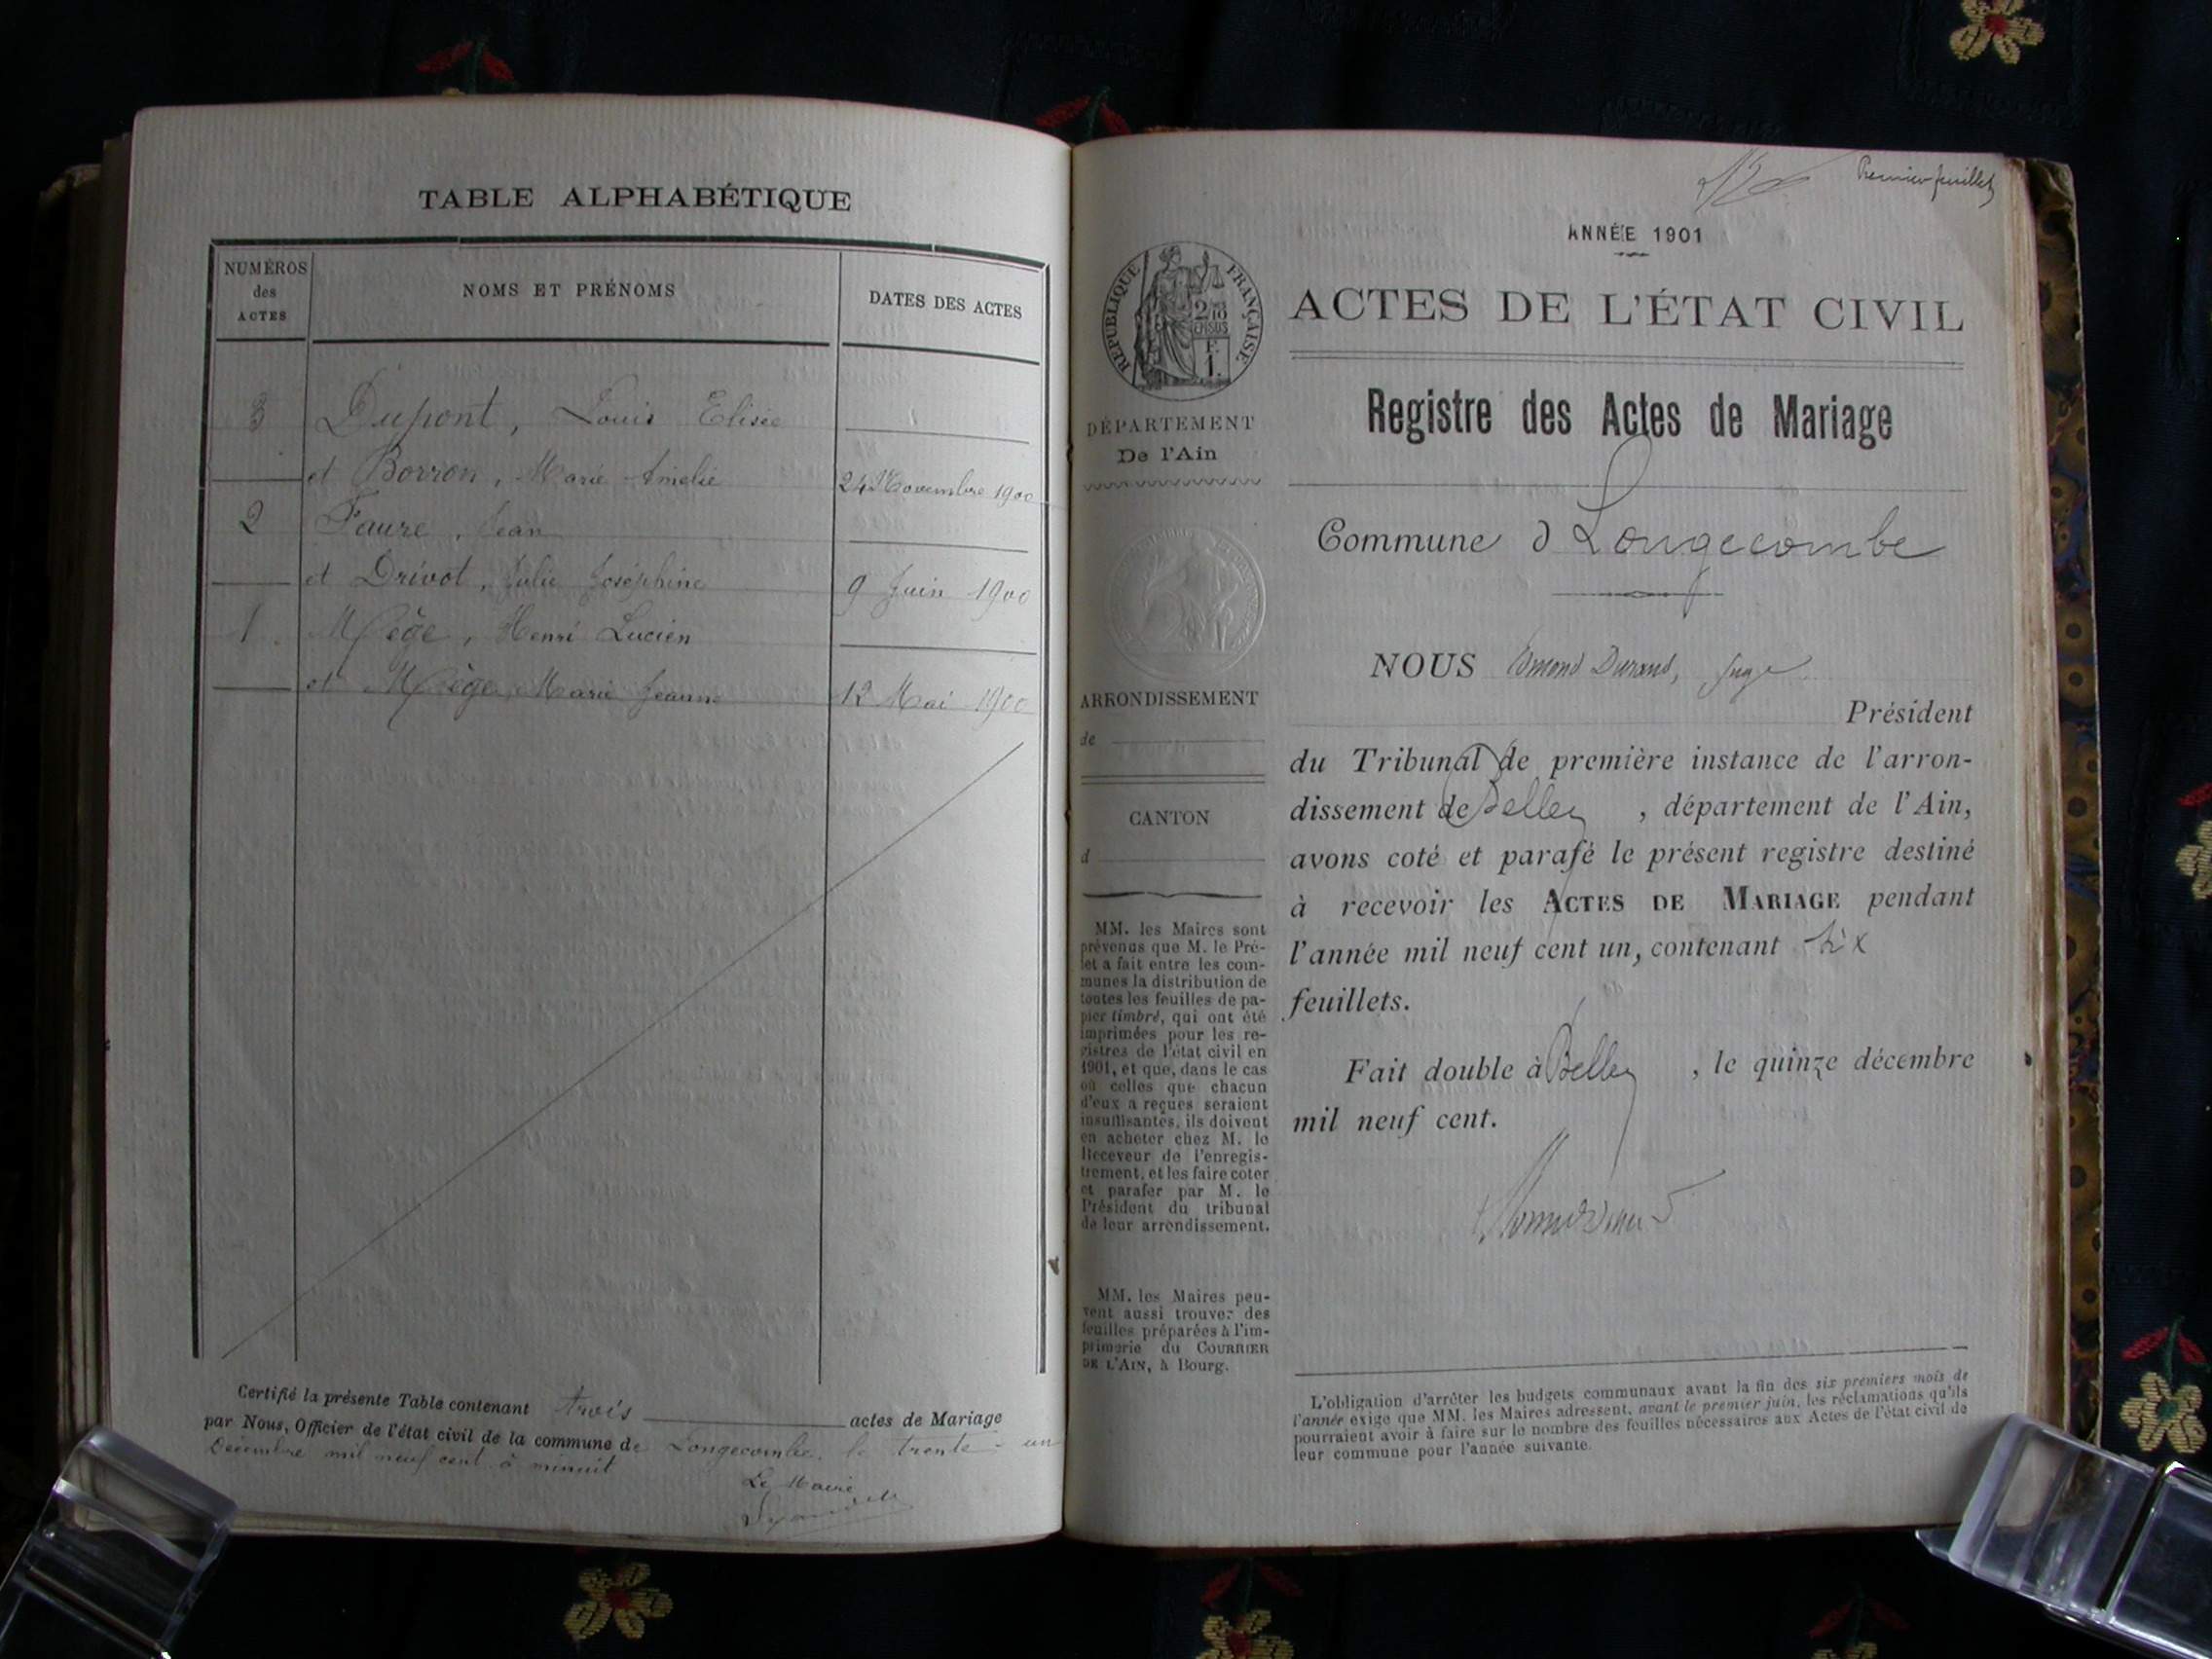 TABLE ALPHABÉTIQUE
NUMÉROS
des
ACTES
NOMS ET PRÉNOMS
DATES DES ACTES
3 Dupont, Louis Elisée
et Borron, Marie Amelie 24 Novembre 1900
2 Faure, Jean
et Drivot, Julie Joséphine 9 Juin 1900
1 Mège, Henri Lucien
et Mège, Marie Jeanne 12 Mai 1900
Certifié la présente Table contenant trois actes de Mariage
par Nous, Officier de l'état civil de la commune de Longecombe, le trente-un
Décembre mil neuf cent à minuit
Le Maire
Premier feuillet
ANNÉE 1901
RÉPUBLIQUE FRANÇAISE
2/10
EN SUS
F.
1.
ACTES DE L'ÉTAT CIVIL
Registre des Actes de Mariage
DÉPARTEMENT
De l'Ain
Commune d Longecombe
NOUS Edmond Durand, Juge
Président
du Tribunal de première instance de l'arron-
dissement de Belley, département de l'Ain,
avons coté et parafé le présent registre destiné
à recevoir les ACTES DE MARIAGE pendant
l'année mil neuf cent un, contenant six
feuillets.
Fait double à Belley, le quinze décembre
mil neuf cent.
ARRONDISSEMENT
de
CANTON
d
MM. les Maires sont
prévenus que M. le Pré-
fet a fait entre les com-
munes la distribution de
toutes les feuilles de pa-
pier timbré, qui ont été
imprimées pour les re-
gistres de l'état civil en
1901, et que, dans le cas
où celles que chacun
d'eux a reçues seraient
insuffisantes, ils doivent
en acheter chez M. le
Receveur de l'enregis-
trement, et les faire coter
et parafer par M. le
Président du tribunal
de leur arrondissement.
MM. les Maires peu-
vent aussi trouver des
feuilles préparées à l'im-
primerie du COURRIER
DE L'AIN, à Bourg.
L'obligation d'arrêter les budgets communaux avant la fin des six premiers mois de
l'année exige que MM. les Maires adressent, avant le premier juin, les réclamations qu'ils
pourraient avoir à faire sur le nombre des feuilles nécessaires aux Actes de l'état civil de
leur commune pour l'année suivante.